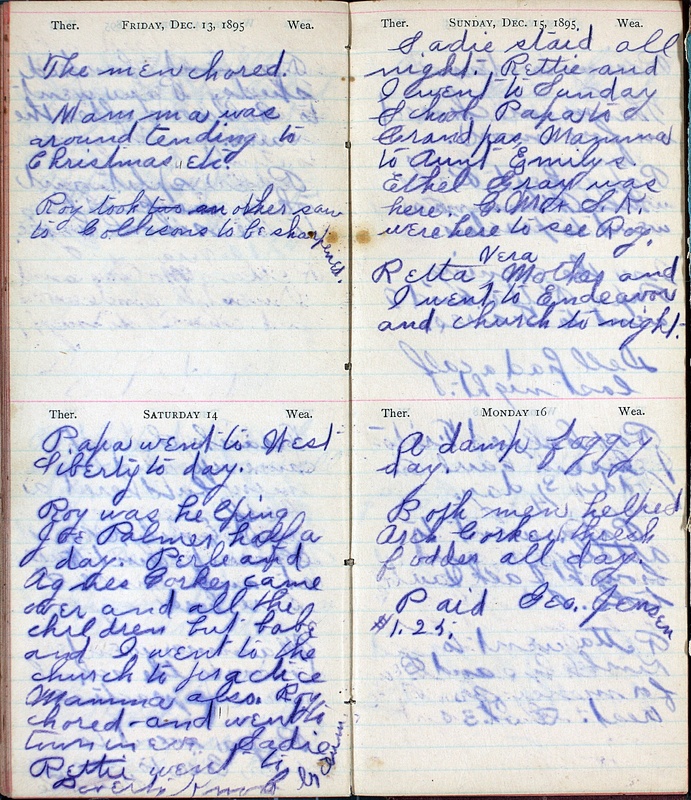 Ther. FRIDAY, DEC. 13, 1895 Wea.
The men chored.
Mamma was
around tending to
Christmas, etc.
Roy took too another saw
to Collisons to be sharpened.
Ther. SATURDAY 14 Wea.
Papa went to West
Liberty to day.
Roy was helping
Joe Palmer half a
day. Perle and
Agnes Corkey came
over and all the
children but babe
and I went to the
church to practice
Mamma also. Roy
chored and went to
town in eve. Sadie
Rettie went to
Ther. SUNDAY, DEC. 15, 1895. Wea.
Sadie staid all
night. Rettie and
I went to Sunday
School. Papa to
Grandpas Mamma
to Aunt Emilys.
Ethel Gray was
here. C. M. & S. R.
were here to see Roy.
Retta Vera Mother and
I went to Endeavor
and church to night.
Ther. MONDAY 16 Wea.
A damp foggy
day.
Both men helped
Arch Corkey thresh
fodder all day.
Paid Geo. Jensen
$1.25.